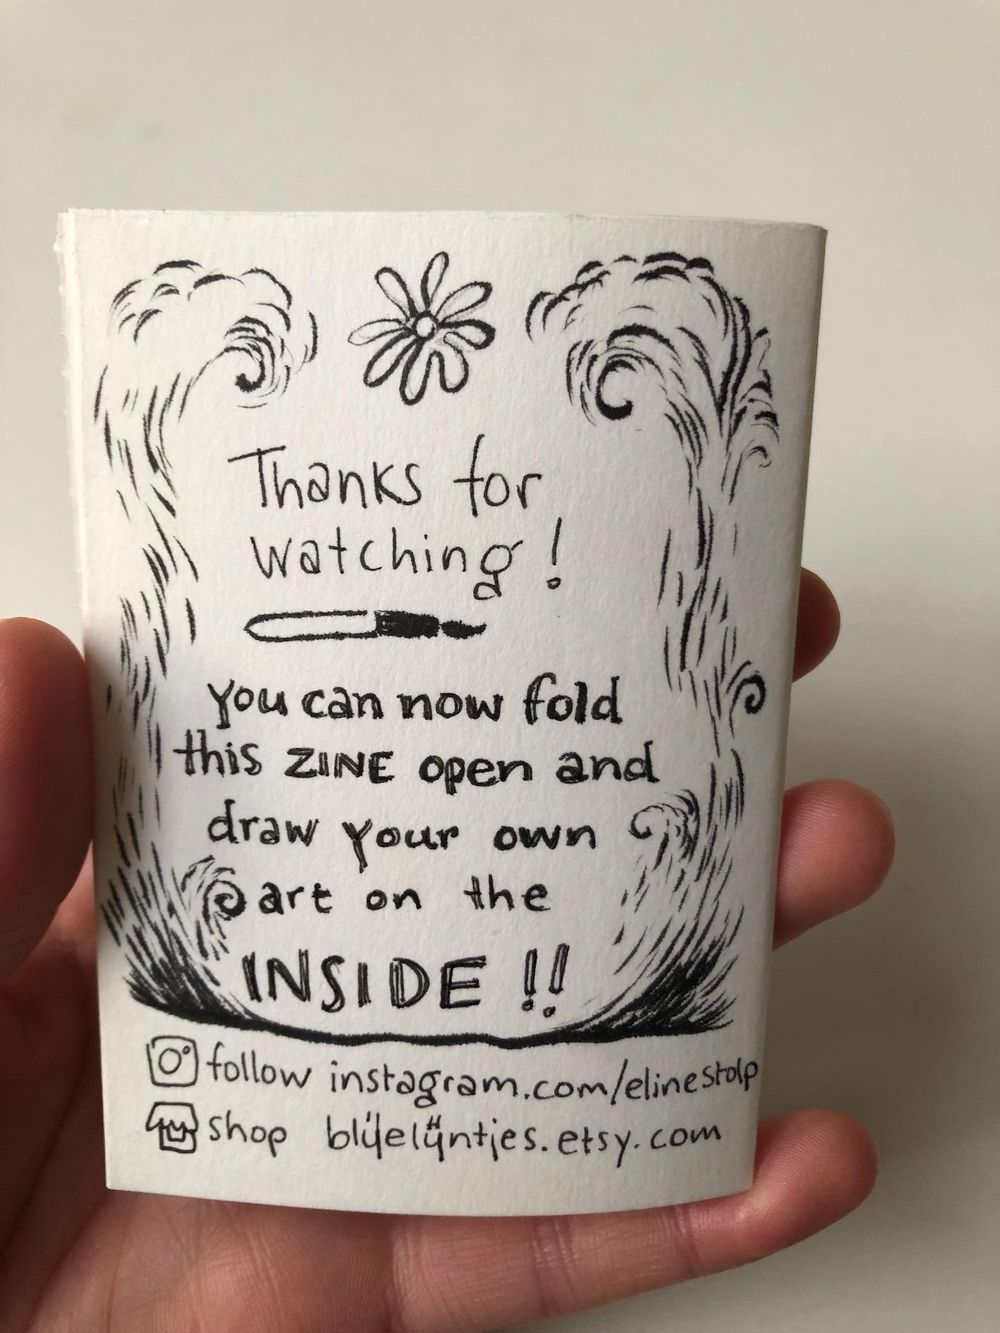 Thanks for
watching!
you can now fold
this ZINE open and
draw your own
art on the
INSIDE!!
follow instagram.com/elinestolp
shop blijelijntjes.etsy.com